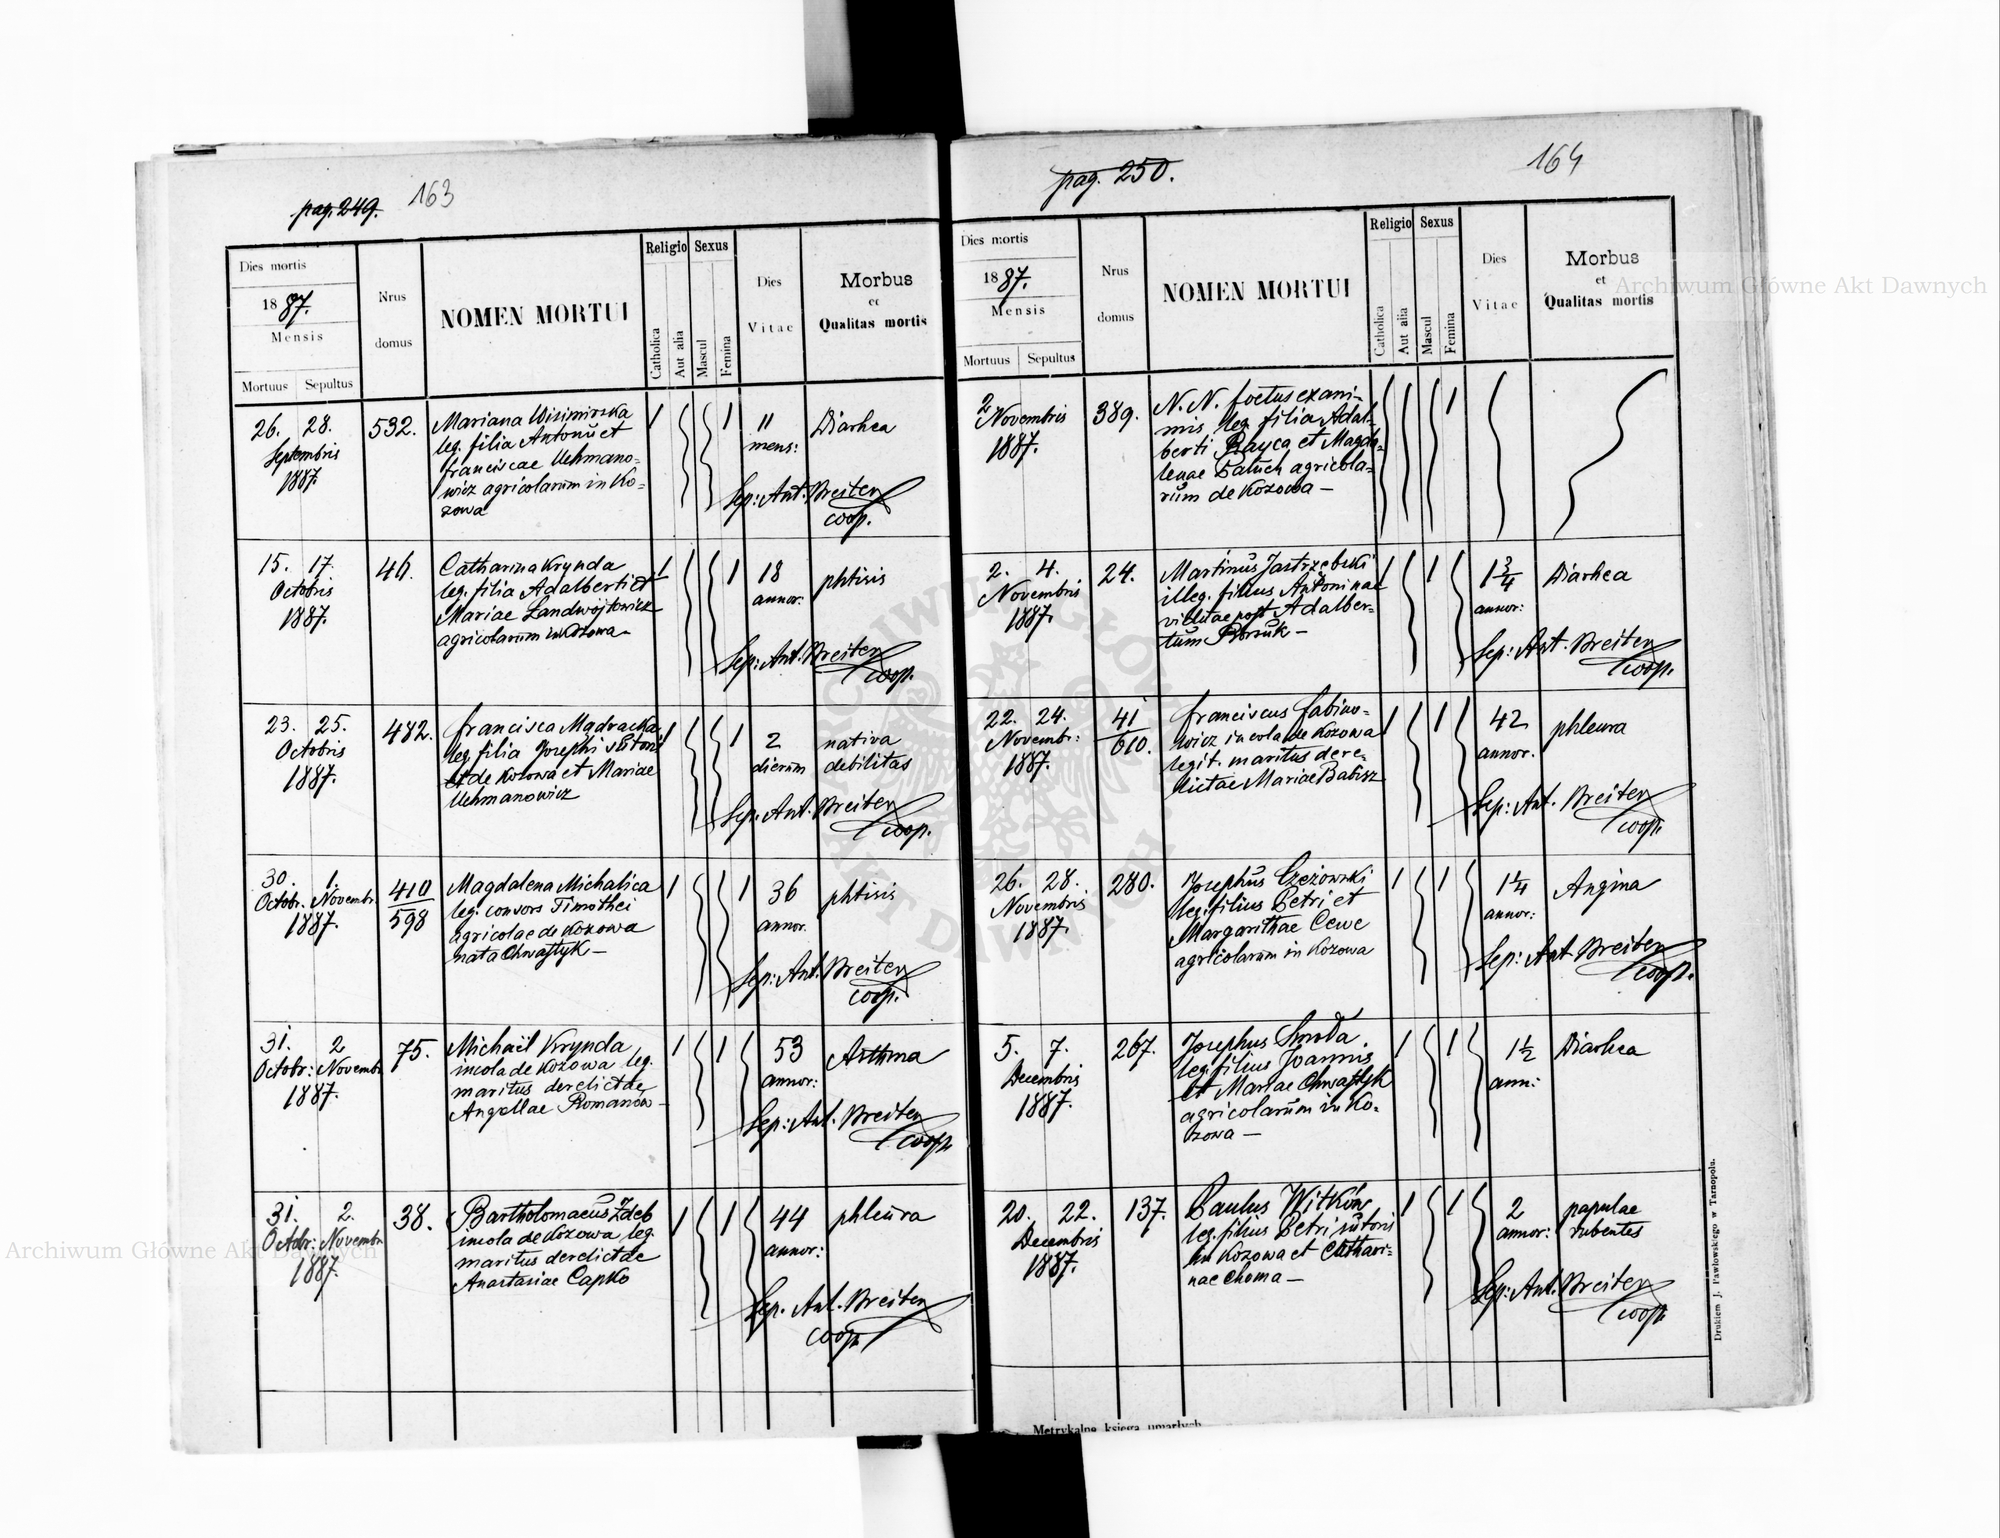 pag. 249. 163
Dies mortis
1887.
Mensis
Mortuus Sepultus
Nrus domus
NOMEN MORTUI
Religio
Catholica
Aut alia
Sexus
Mascul
Femina
Dies Vitae
Morbus
et
Qualitas mortis
26. 28.
Septembris
1887.
532.
Mariana
leg. filia Antonii et
Franciscae Uchmano=
wicz agricolarum in Ko=
zowa
1 1
11
mens:
Diarhea
Sep: Ant. Breiter
coop.
15. 17.
Octobris
1887.
46.
Catharina Krynda
leg. filia Adalberti et
Mariae Landwójtowicz
agricolarum in Kozowa -
1 1
18
annor:
phtisis
Sep: Ant. Breiter
coop.
23. 25.
Octobris
1887.
482.
Francisca Mądracka
leg. filia Josephi sutoris
de Kozowa et Mariae
Uchmanowicz
1 1
2
dierum
nativa
debilitas
Sep: Ant. Breiter
coop.
30. 1.
Octobr. Novembr.
1887.
410
598
Magdalena Michalica
leg. consors Timothei
agricolae de Kozowa
nata Chwastyk -
1 1
36
annor.
phtisis
Sep: Ant. Breiter
coop.
31. 2
Octobr: Novembr
1887.
75.
Michaël Krynda
incola de Kozowa leg.
maritus derelictae
Angellae Romanów -
1 1
53
annor:
Asthma
Sep: Ant. Breiter
coop.
31. 2.
Octobr: Novembr
1887.
38.
Bartholomaeus Zdeb
incola de Kozowa leg.
maritus derelictae
Anastasiae Capko
1 1
44
annor:
phleura
Sep. Ant. Breiter
coop.
pag. 250. 164
Dies mortis
1887.
Mensis
Mortuus Sepultus
Nrus domus
NOMEN MORTUI
Religio
Catholica
Aut alia
Sexus
Mascul
Femina
Dies Vitae
Morbus
et
Qualitas mortis
2
Novembris
1887.
389.
N. N. foetus exani=
mis leg. filia Adal=
berti Rayca et Magda=
lenae Paluch agricola=
rum de Kozowa -
1
2. 4.
Novembris
1887.
24.
Martinus Jastrzębski
illeg. filius Antoninae
viduae post Adalber=
tum
1 1
1 3/4
annor:
Diarhea
Sep: Ant. Breiter
coop.
22. 24.
Novembr:
1887.
41
610.
Franciscus Fabino=
wicz incola de Kozowa
legit. maritus dere=
lictae Mariae Babisz
1 1
42
annor.
phleura
Sep: Ant. Breiter
coop.
26. 28.
Novembris
1887.
280.
Josephus Czeżowski
leg. filius Petri et
Margarithae Cewe
agricolarum in Kozowa
1 1
1 1/4
annor:
Angina
Sep: Ant Breiter
coop.
5. 7.
Decembris
1887.
267.
Josephus
leg. filius Joannis
et Mariae Chwastyk
agricolarum in Ko=
zowa -
1 1
1 1/2
ann:
Diarhea
20. 22.
Decembris
1887.
137.
Paulus
leg. filius Petri sutoris
in Kozowa et Cathari=
nae Choma -
1 1
2
annor:
papulae
rubentes
Sep: Ant. Breiter
coop.
Drukiem J. Pawłowskiego w Tarnopolu.
Metrykalne księga umarłych
Archiwum Główne Akt Dawnych
Archiwum Główne Akt Dawnych
ARCHIWUM GŁÓWNE AKT DAWNYCH